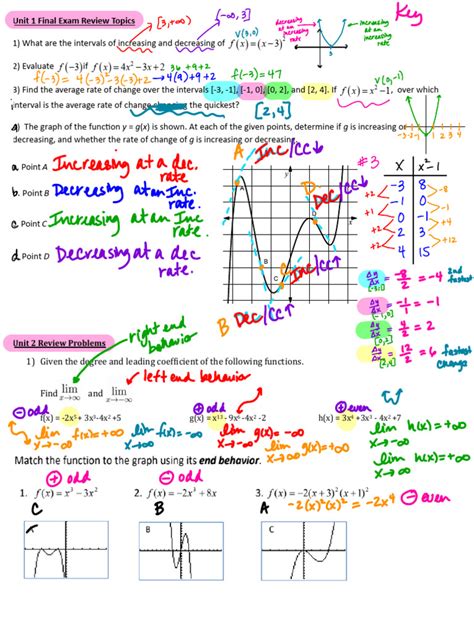 Unit 1 Final Exam Review Topics
[3,+∞)
[-∞, 3]
Key
V(3,0)
decreasing at an increasing rate
increasing at an increasing rate
3
1) What are the intervals of increasing and decreasing of f(x) = (x−3)²
2) Evaluate f(−3) if f(x) = 4x² − 3x + 2 36+9+2
f(-3) = 4(-3)²-3(-3)+2 → 4(9)+9+2 f(-3) = 47
V(0,-1)
3) Find the average rate of change over the intervals [-3, -1], [-1, 0], [0, 2], and [2, 4]. If f(x) = x² −1, over which
interval is the average rate of change the quickest?
[2,4]
4) The graph of the function y = g(x) is shown. At each of the given points, determine if g is increasing or
decreasing, and whether the rate of change of g is increasing or decreasing.
a. Point A Increasing at a dec. rate.
b. Point B Decreasing at an Inc. rate.
c. Point C Increasing at an Inc rate.
d. Point D Decreasing at a dec rate.
A
Inc/CC↓
D
Dec/CC↓
Inc/CC↑
B Dec/CC↑
y
x
A
B
C
D
#3
X x²-1
-3 8
-1 0
0 -1
2 3
4 15
+2
+1
+2
+2
-8
-1
+4
+12
Δy/Δx [-3,-1] = -8/2 = -4 2nd fastest
Δy/Δx [-1,0] = -1/1 = -1
Δy/Δx [0,2] = 4/2 = 2
Δy/Δx [2,4] = 12/2 = 6 fastest change
Unit 2 Review Problems
right end behavior
1) Given the degree and leading coefficient of the following functions.
left end behavior
Find lim x→∞ and lim x→−∞
⊖ odd
⊕ odd
⊕ even
f(x) = -2x⁵+ 3x³-4x²+5
g(x) = x¹³- 9x⁶-4x²-2
h(x) = 3x⁶+ 3x³-4x²+7
lim x→-∞ f(x)=+∞
lim x→∞ f(x)=-∞
lim x→-∞ g(x)=-∞
lim x→∞ g(x)=+∞
lim x→-∞ h(x)=+∞
lim x→∞ h(x)=+∞
Match the function to the graph using its end behavior.
⊕ odd
⊖ odd
1. f(x) = x³ − 3x²
2. f(x) = −2x³ + 8x
3. f(x) = −2(x+3)²(x+1)²
C
B
A
-2(x)²(x)² = -2x⁴ ⊖ even
B
C